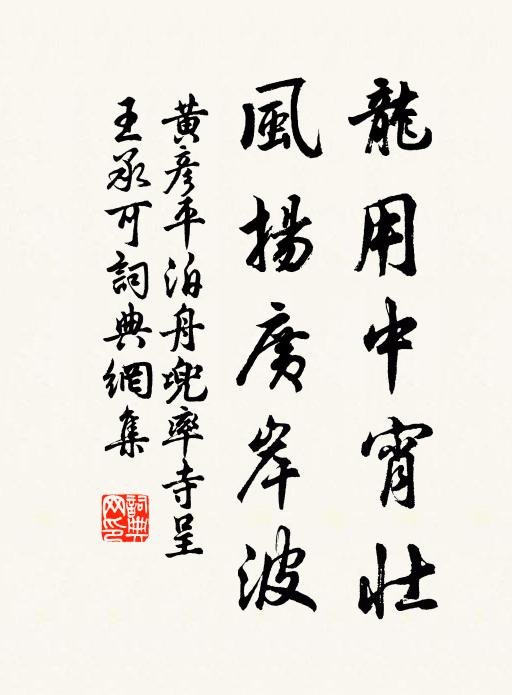 龍用中宵壯
風揚廣岸波
黃彥平泊舟兜率寺呈
王承可詞典網集
詞典网印